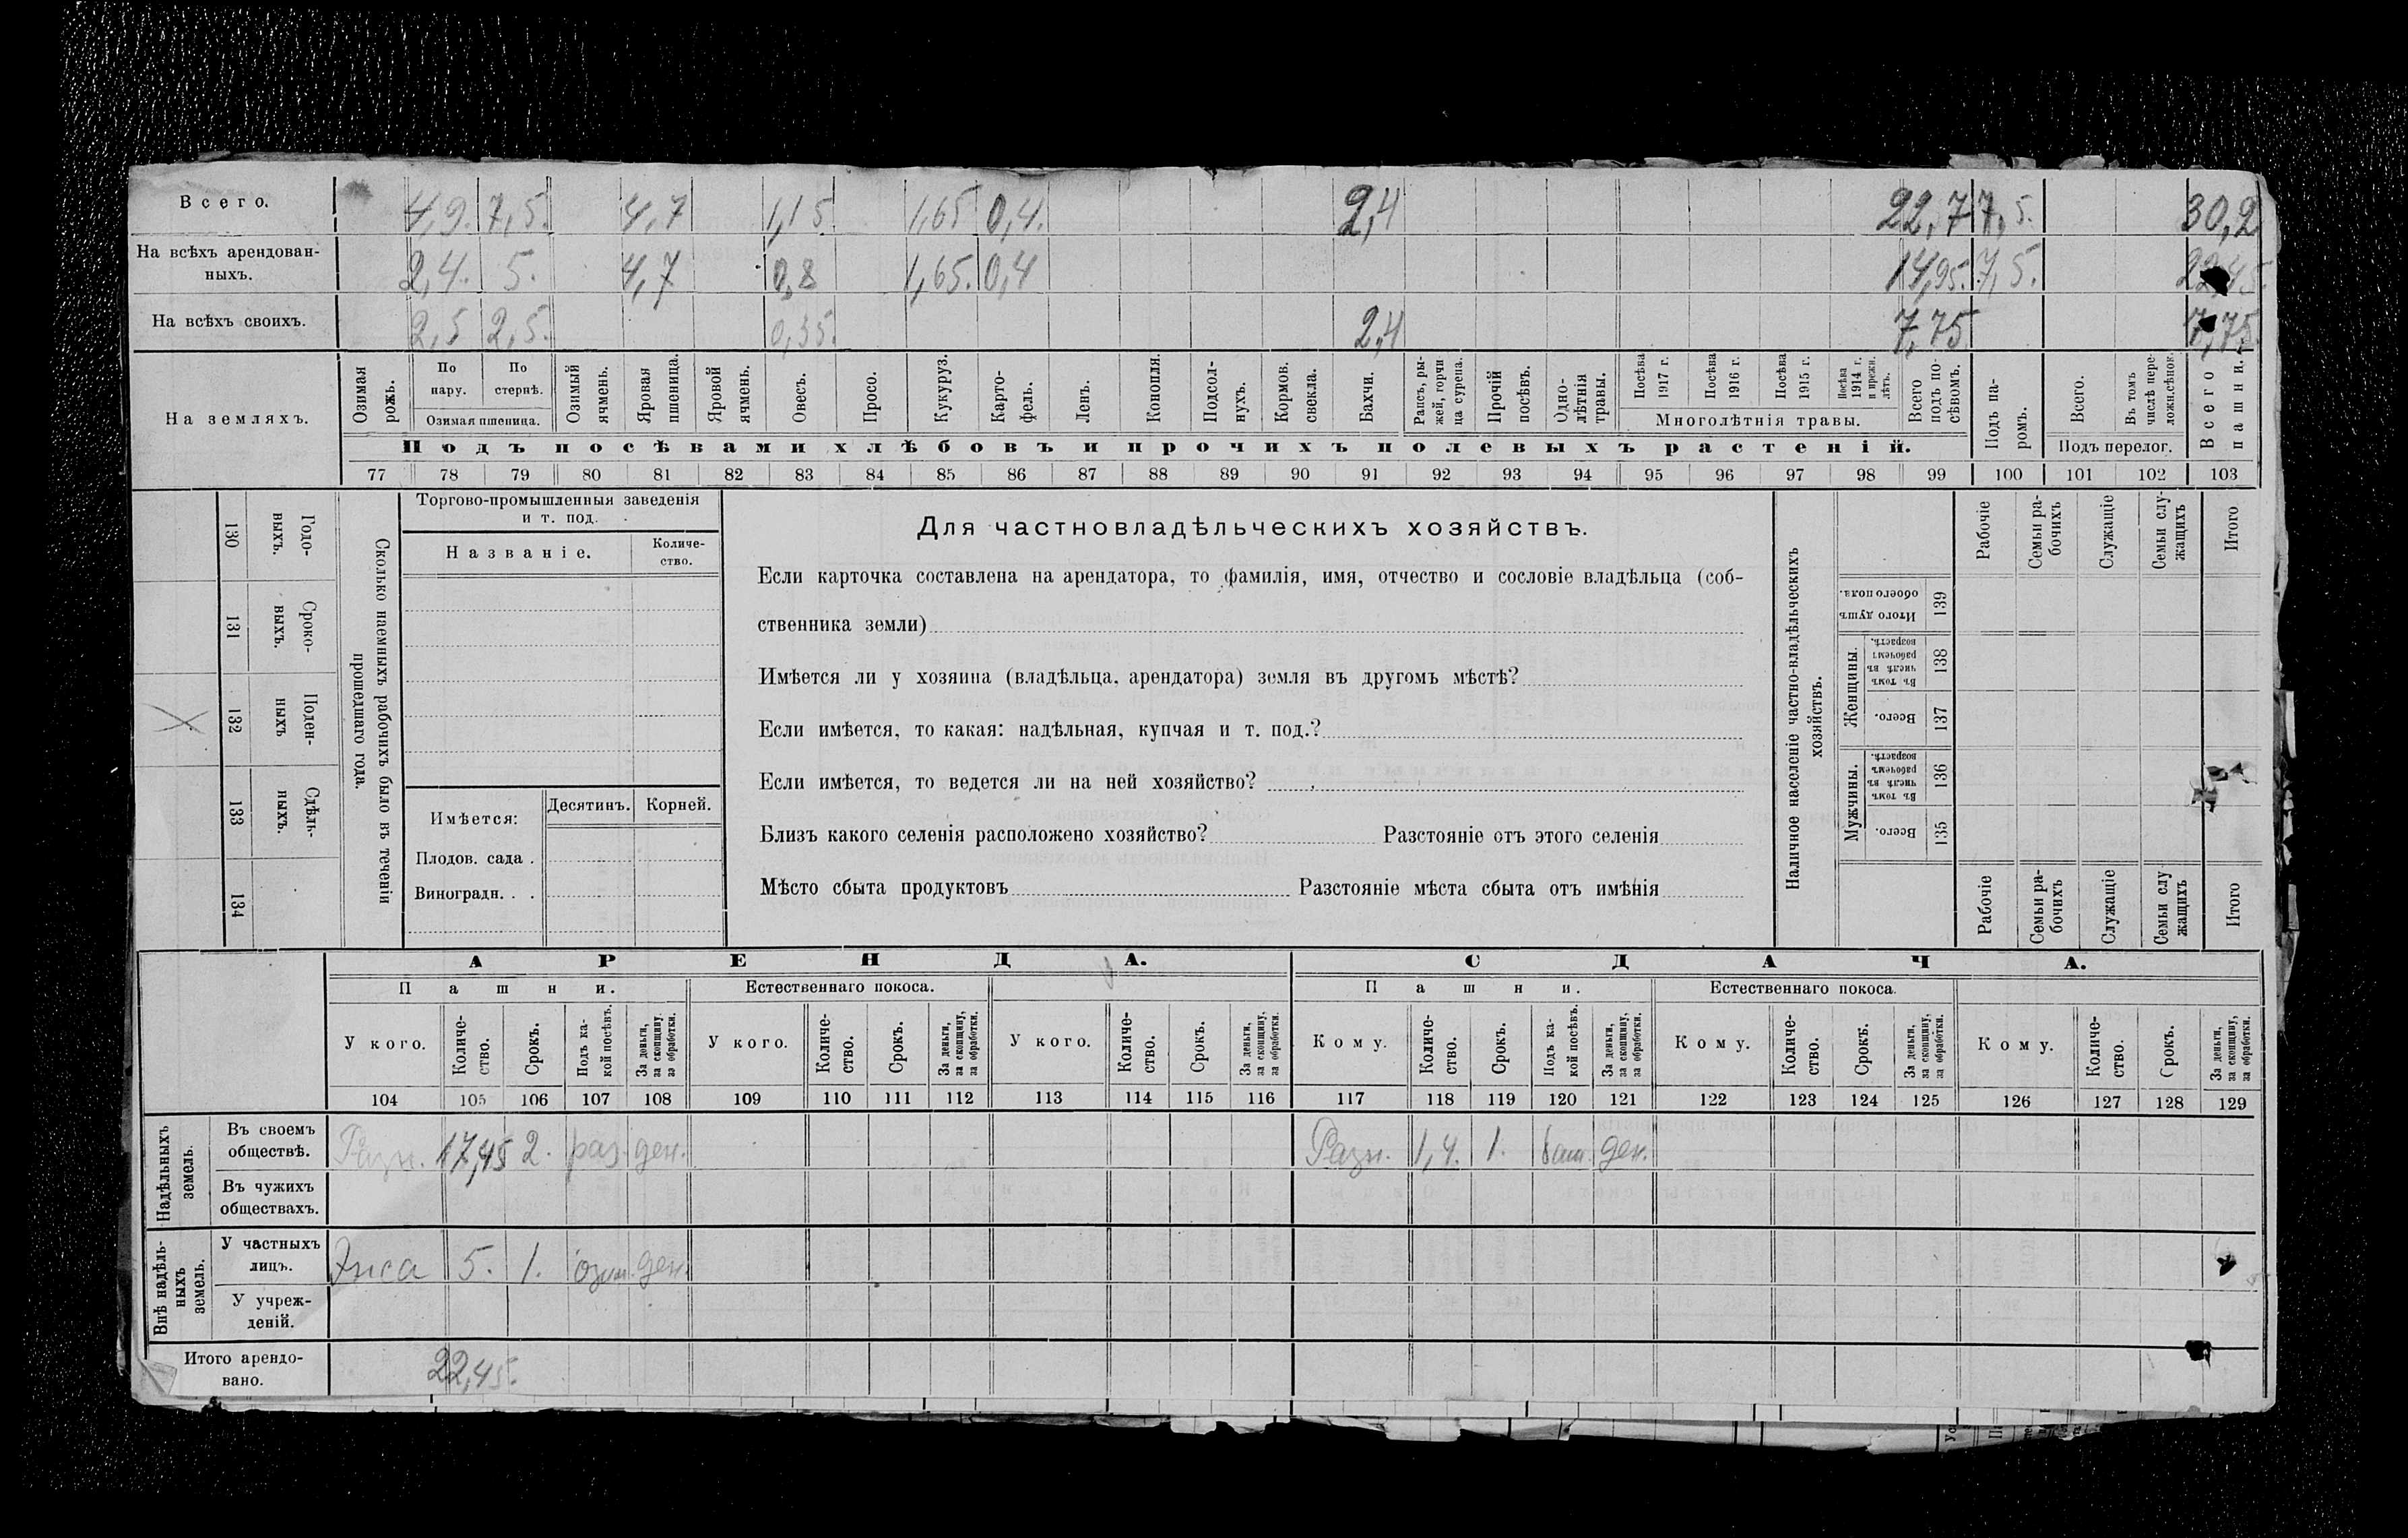 Всего. 4,9. 7,5. 4,7 1,15 1,65 0,4. 2,4 22,7 7,5. 30,2
На всѣхъ арендован-
ныхъ. 2,4. 5. 4,7 0,8 1,65. 0,4 14,95. 7,5. 22,45.
На всѣхъ своихъ. 2,5 2,5. 0,35. 2,4 7,75 7,75
На земляхъ.
Озимая рожь.
По пару.
По стернѣ.
Озимая пшеница.
Озимый ячмень.
Яровая пшеница.
Яровой ячмень.
Овесъ.
Просо.
Кукуруз.
Карто-
фель.
Ленъ.
Конопля.
Подсол-
нухъ.
Кормов. свекла.
Бахчи.
Рапсъ, ры-
жей, горчи
ца сурепа.
Прочій посѣвъ.
Одно-
лѣтнія травы.
Посѣва 1917 г.
Посѣва 1916 г.
Посѣва 1915 г.
Посѣва 1914 г. и прежн. лѣтъ.
Многолѣтнія травы.
Всего подъ по-
сѣвомъ.
Подъ па-
ромъ.
Всего.
Въ томъ числѣ пере-
ложн.сѣнок.
Подъ перелог.
Всего пашни.
Подъ посѣвами хлѣбовъ и прочихъ полевыхъ растеній.
77 78 79 80 81 82 83 84 85 86 87 88 89 90 91 92 93 94 95 96 97 98 99 100 101 102 103
130 Годо-
выхъ.
131 Сроко-
выхъ.
132 Поден-
ныхъ
133 Сдѣль-
ныхъ.
134
Сколько наемныхъ рабочихъ было въ теченіи
прошедшаго года.
Торгово-промышленныя заведенія
и т. под.
Названіе.
Количе-
ство.
Имѣется:
Десятинъ. Корней.
Плодов. сада .
Виноградн. . .
Для частновладѣльческихъ хозяйствъ.
Если карточка составлена на арендатора, то фамилія, имя, отчество и сословіе владѣльца (соб-
ственника земли)
Имѣется ли у хозяина (владѣльца, арендатора) земля въ другомъ мѣстѣ?
Если имѣется, то какая: надѣльная, купчая и т. под.?
Если имѣется, то ведется ли на ней хозяйство?
Близъ какого селенія расположено хозяйство? Разстояніе отъ этого селенія
Мѣсто сбыта продуктовъ Разстояніе мѣста сбыта отъ имѣнія
Наличное населеніе частно-владѣльческихъ
хозяйствъ.
Рабочіе
Семьи ра-
бочихъ
Служащіе
Семьи слу-
жащихъ
Итого
Итого душъ обоего пола. 139
Женщины.
Въ томъ числѣ въ рабочемъ возрастѣ. 138
Всего. 137
Мужчины.
Въ томъ числѣ въ рабочемъ возрастѣ. 136
Всего. 135
Рабочіе
Семьи ра-
бочихъ
Служащіе
Семьи слу
жащихъ
Итого
АРЕНДА.
СДАЧА.
Пашни.
Естественнаго покоса.
Пашни.
Естественнаго покоса.
У кого.
Количе-
ство.
Срокъ.
Подъ ка-
кой посѣвъ.
За деньги,
за скопщину,
за обработки.
У кого.
Количе-
ство.
Срокъ.
За деньги,
за скопщину,
за обработки.
У кого.
Количе-
ство.
Срокъ.
За деньги,
за скопщину,
за обработки.
Кому.
Количе-
ство.
Срокъ.
Подъ ка-
кой посѣвъ.
За деньги,
за скопщину,
за обработки.
Кому.
Количе-
ство.
Срокъ.
За деньги,
за скопщину,
за обработки.
Кому.
Количе-
ство.
Срокъ.
За деньги,
за скопщину,
за обработки.
104 105 106 107 108 109 110 111 112 113 114 115 116 117 118 119 120 121 122 123 124 125 126 127 128 129
Надѣльныхъ
земель.
Въ своемъ
обществѣ. Разн. 17,45 2. раз. ден. Разн. 1,4. 1. баш. ден.
Въ чужихъ
обществахъ.
Внѣ надѣль-
ныхъ
земель.
У частныхъ
лицъ. 5. 1. озим. ден.
У учреж-
деній.
Итого арендо-
вано. 22,45.